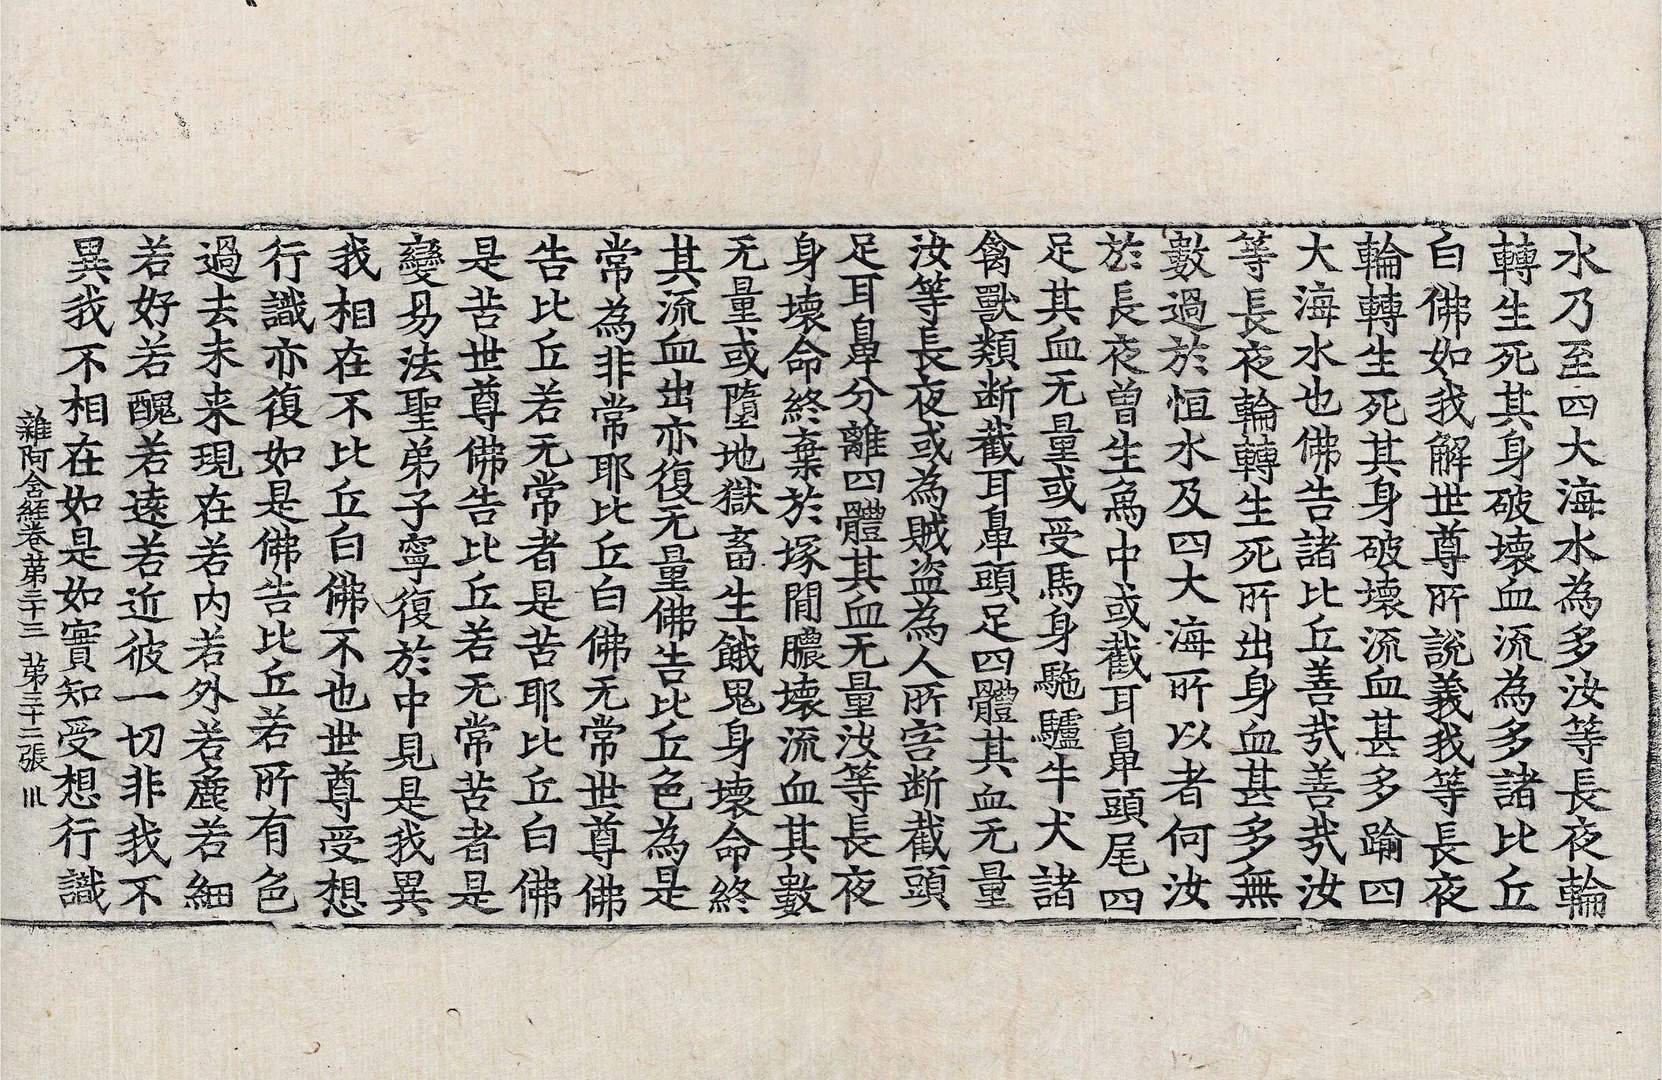 水乃至四大海水為多汝等長夜輪
轉生死其身破壞血流為多諸比丘
白佛如我解世尊所說義我等長夜
輪轉生死其身破壞流血甚多踰四
大海水也佛告諸比丘善㢤善㢤汝
等長夜輪轉生死所出身血甚多無
數過於恒水及四大海所以者何汝
於長夜曾生鳥中或截耳鼻頭尾四
足其血无量或受馬身駞驢牛犬諸
禽獸類断截耳鼻頭足四體其血无量
汝等長夜或為賊盗為人所害断截頭
足耳鼻分離四體其血无量汝等長夜
身壞命終棄於塚間膿壞流血其數
无量或墮地獄畜生餓鬼身壞命終
其流血出亦復无量佛告比丘色為是
常為非常耶比丘白佛无常世尊佛
告比丘若无常者是苦耶比丘白佛
是苦世尊佛告比丘若无常苦者是
變易法聖弟子寧復於中見是我異
我相在不比丘白佛不也世尊受想
行識亦復如是佛告比丘若所有色
過去未来現在若内若外若麁若細
若好若醜若遠若近彼一切非我不
異我不相在如是如實知受想行識
雜阿含経卷苐三十三　苐三十二張